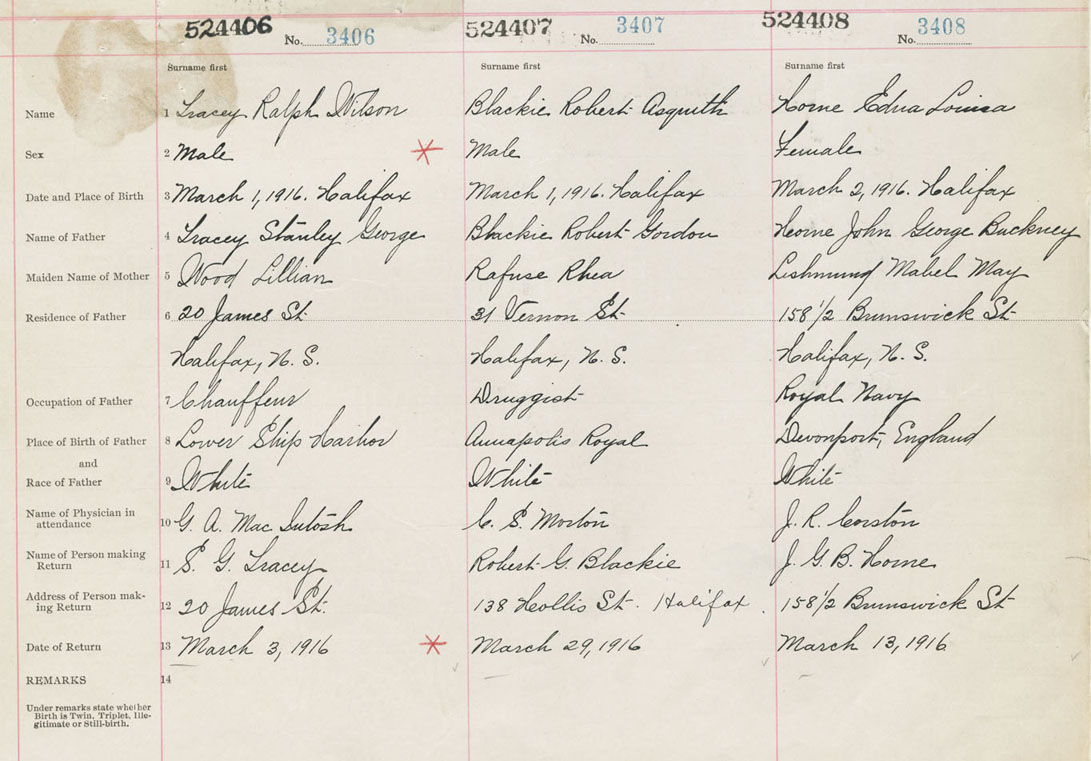 524406 524407 524408
No. 3406 No. 3407 No. 3408
Surname first Surname first Surname first
Name 1 Tracey Ralph Wilson Blackie Robert Asquith Horne Edna Louisa
Sex 2 Male Male Female
Date and Place of Birth 3 March 1, 1916. Halifax March 1, 1916. Halifax March 2, 1916. Halifax
Name of Father 4 Tracey Stanley George Blackie Robert Gordon Horne John George Buckney
Maiden Name of Mother 5 Wood Lillian Rafuse Rhea Mabel May
Residence of Father 6 20 James St. 31 Vernon St. 158 1/2 Brunswick St.
Halifax, N. S. Halifax, N. S. Halifax, N. S.
Occupation of Father 7 Chauffeur Druggist Royal Navy
Place of Birth of Father 8 Lower Ship Harbor Annapolis Royal Devonport, England
and
Race of Father 9 White White White
Name of Physician in
attendance 10 G. A. Mac Intosh C. S. Morton J. R. Corston
Name of Person making
Return 11 S. G. Tracey Robert G. Blackie J. G. B. Horne
Address of Person mak-
ing Return 12 20 James St. 138 Hollis St. Halifax. 158 1/2 Brunswick St
Date of Return 13 March 3, 1916 March 29, 1916 March 13, 1916
REMARKS 14
Under remarks state whether
Birth is Twin, Triplet, Ille-
gitimate or Still-birth.